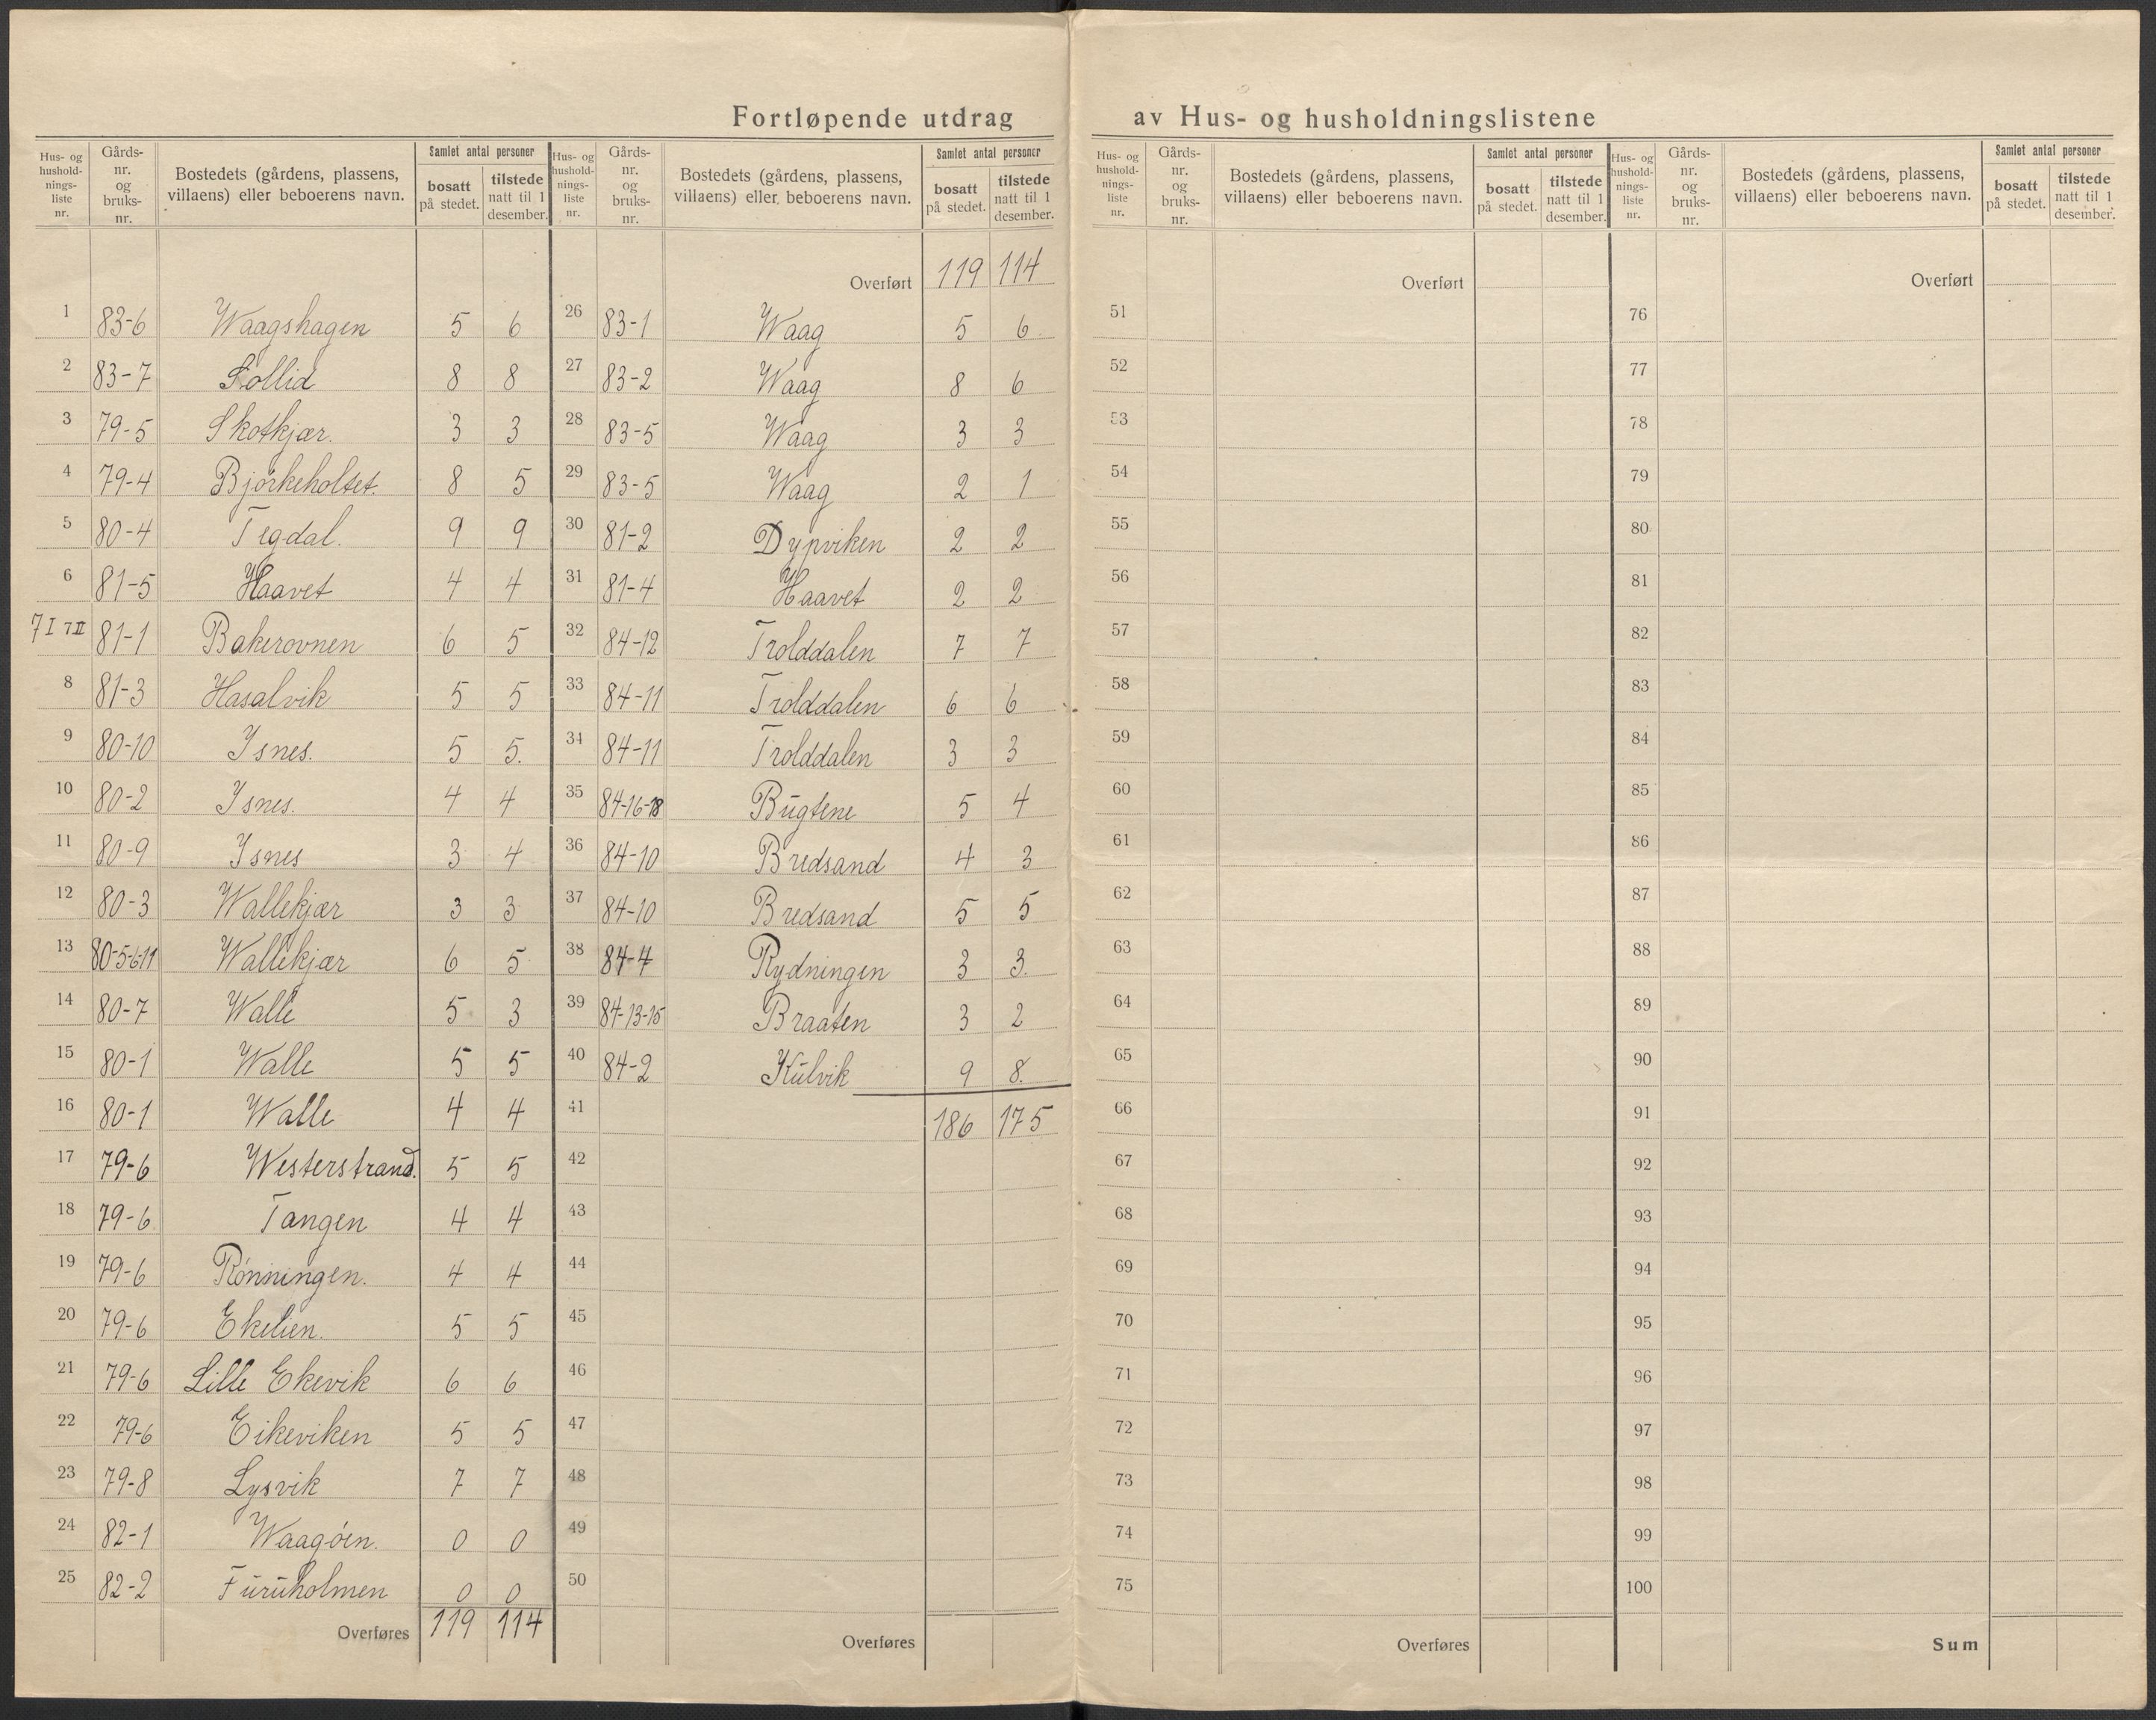 Fortløpende utdrag av Hus- og husholdningslistene
Hus- og hushold-nings-liste nr. Gårds-nr. og bruks-nr. Bostedets (gårdens, plassens, villaens) eller beboerens navn. Samlet antal personer bosatt på stedet. tilstede natt til 1 desember.
1 83-6 Waagshagen 5 6
2 83-7 Sollid 8 8
3 79-5 Skotkjær. 3 3
4 79-4 Bjørkeholtet. 8 5
5 80-4 Tegdal. 9 9
6 81-5 Haavet 4 4
7 I 7 II 81-1 Bakerovnen 6 5
8 81-3 Hasalvik 5 5
9 80-10 Isnes. 5 5.
10 80-2 Isnes. 4 4
11 80-9 Isnes 3 4
12 80-3 Wallekjær 3 3
13 80-5-6-11 Wallekjær 6 5
14 80-7 Walle 5 3
15 80-1 Walle 5 5
16 80-1 Walle 4 4
17 79-6 Westerstrand. 5 5
18 79-6 Tangen 4 4
19 79-6 Rønningen. 4 4
20 79-6 Ekelien. 5 5
21 79-6 Lille Ekevik 6 6
22 79-6 Eikeviken 5 5
23 79-8 Lysvik 7 7
24 82-1 Waagøen. 0 0
25 82-2 Furuholmen 0 0
Overføres 119 114
Hus- og hushold-nings-liste nr. Gårds-nr. og bruks-nr. Bostedets (gårdens, plassens, villaens) eller beboerens navn. Samlet antal personer bosatt på stedet. tilstede natt til 1 desember.
Overført 119 114
26 83-1 Waag 5 6
27 83-2 Waag 8 6
28 83-5 Waag 3 3
29 83-5 Waag 2 1
30 81-2 Dypviken 2 2
31 81-4 Haavet 2 2
32 84-12 Trolddalen 7 7
33 84-11 Trolddalen 6 6
34 84-11 Trolddalen 3 3
35 84-16-18 Bugtene 5 4
36 84-10 Bredsand 4 3
37 84-10 Bredsand 5 5
38 84-4 Rydningen 3 3.
39 84-13-15 Braaten 3 2
40 84-2 Kulvik 9 8.
41 186 175
42
43
44
45
46
47
48
49
50
Overføres
Hus- og hushold-nings-liste nr. Gårds-nr. og bruks-nr. Bostedets (gårdens, plassens, villaens) eller beboerens navn. Samlet antal personer bosatt på stedet. tilstede natt til 1 desember.
Overført
51
52
53
54
55
56
57
58
59
60
61
62
63
64
65
66
67
68
69
70
71
72
73
74
75
Overføres
Hus- og hushold-nings-liste nr. Gårds-nr. og bruks-nr. Bostedets (gårdens, plassens, villaens) eller beboerens navn. Samlet antal personer bosatt på stedet. tilstede natt til 1 desember.
Overført
76
77
78
79
80
81
82
83
84
85
86
87
88
89
90
91
92
93
94
95
96
97
98
99
100
Sum